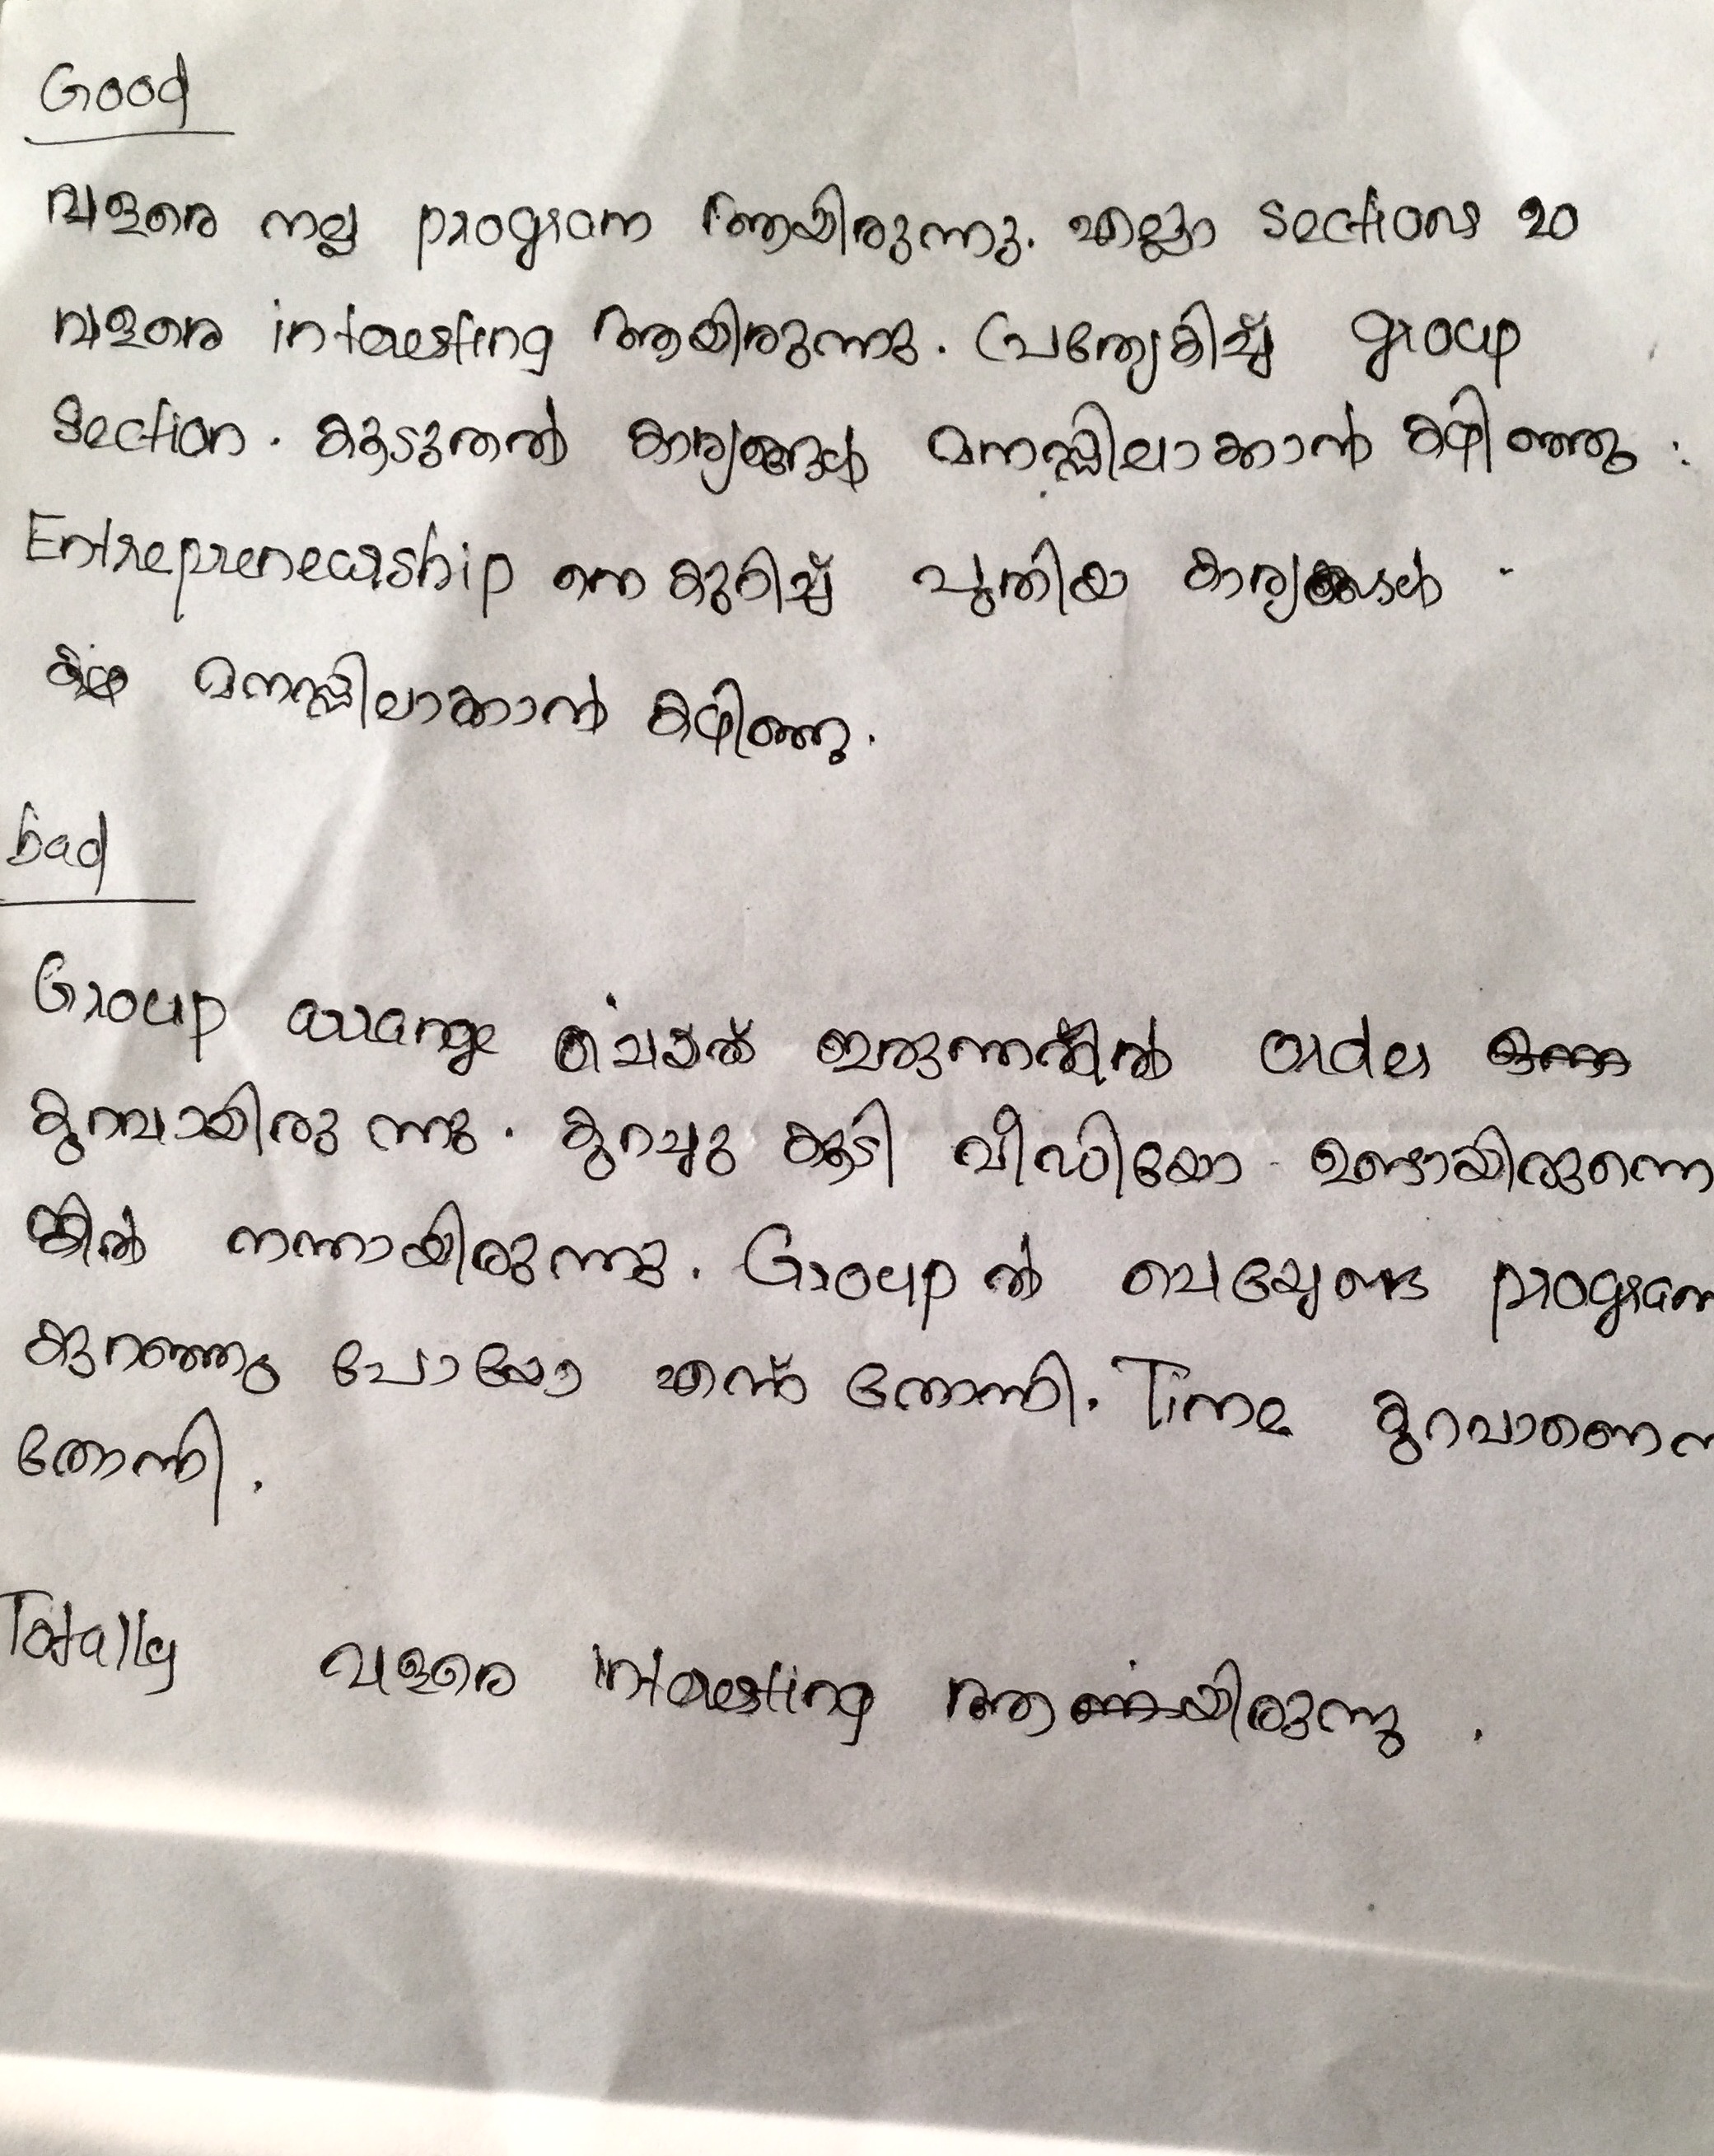 Good
വളരെ നല്ല program ആയിരുന്നു. എല്ലാ sections ഉം
വളരെ interesting ആയിരുന്നു. പ്രത്യേകിച്ച് group
Section. കൂടുതൽ കാര്യങ്ങൾ മനസ്സിലാക്കാൻ കഴിഞ്ഞു.
Entrepreneurship നെ കുറിച്ച് പുതിയ കാര്യങ്ങൾ
മനസ്സിലാക്കാൻ കഴിഞ്ഞു.
bad
Group arrange ചെയ്ത് ഇരുന്നതിൽ order
കുറവായിരുന്നു. കുറച്ചു കൂടി വീഡിയോ ഉണ്ടായിരുന്നെ
ങ്കിൽ നന്നായിരുന്നു. Group ൽ ചെയ്യേണ്ട program
കുറഞ്ഞു പോയോ എന്ന് തോന്നി. Time കുറവാണെന
തോന്നി.
Totally വളരെ interesting ആയിരുന്നു.